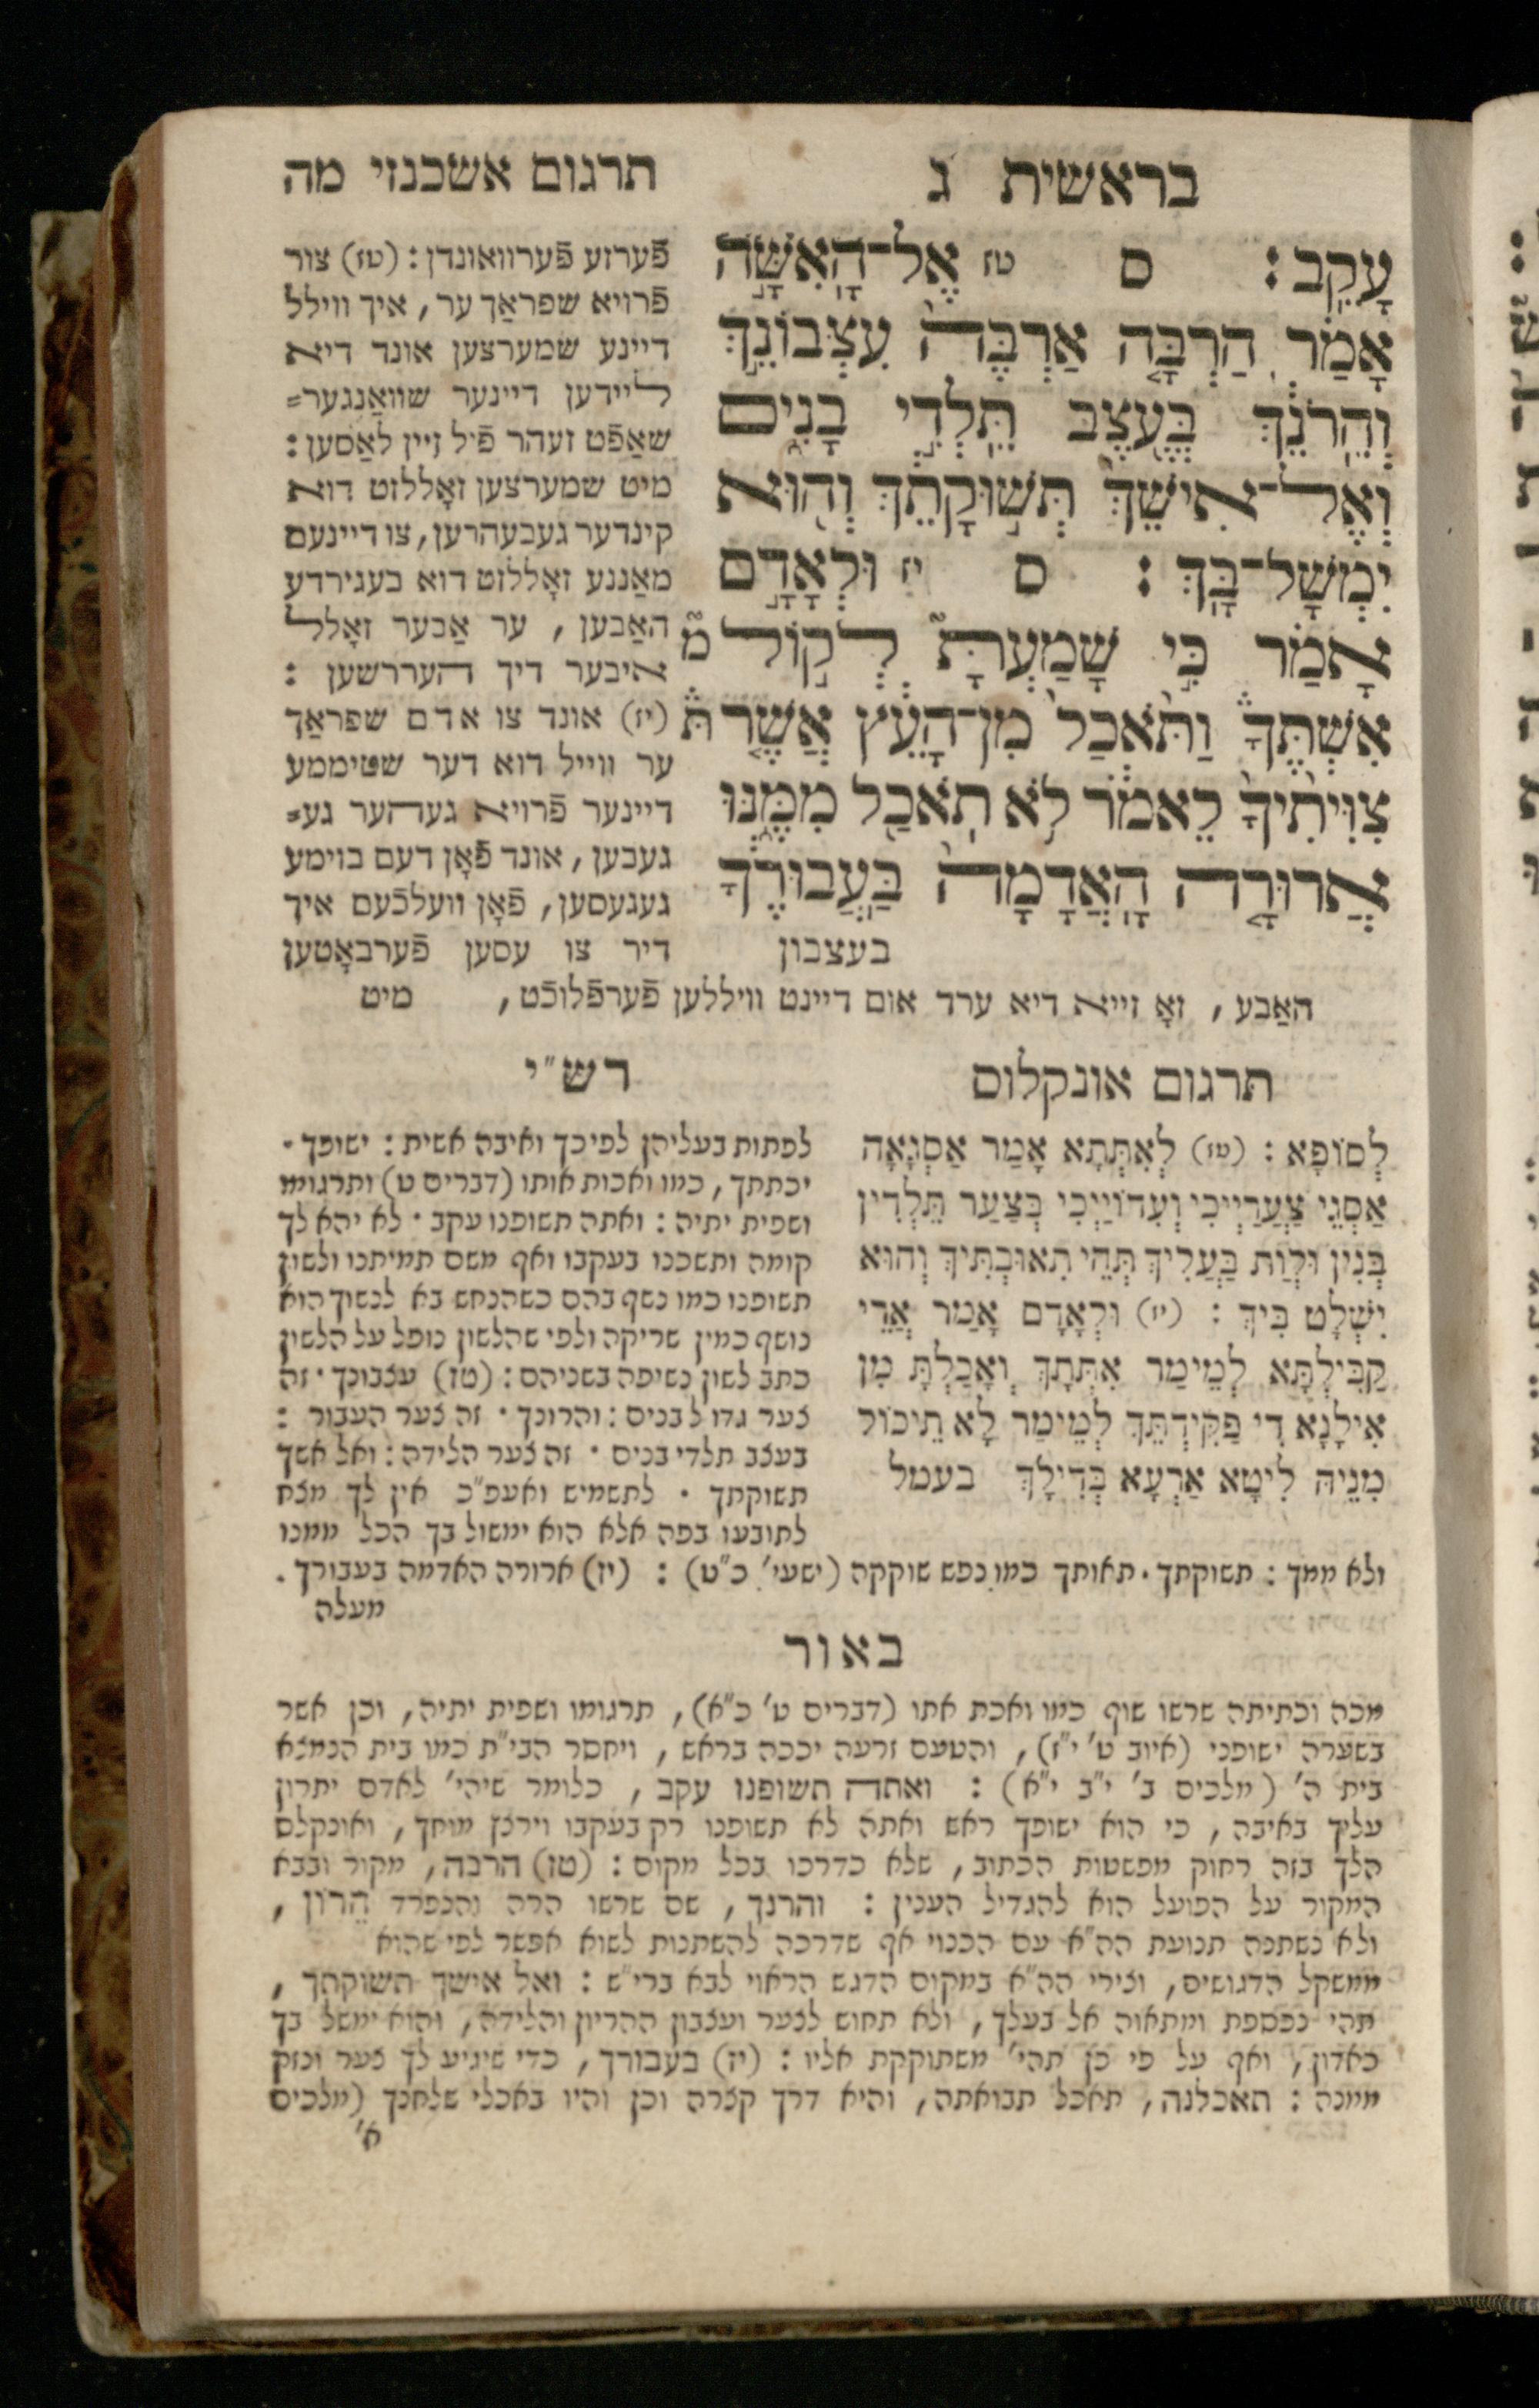 בראשית ג
תרגום אשכנזי מה
עָקֵֽב׃ ס טז אֶֽל־הָאִשָּׁ֣ה
אָמַ֗ר הַרְבָּ֤ה אַרְבֶּה֙ עִצְּבוֹנֵ֣ךְ
וְהֵֽרֹנֵ֔ךְ בְּעֶ֖צֶב תֵּֽלְדִ֣י בָנִ֑ים
וְאֶל־אִישֵׁךְ֙ תְּשׁ֣וּקָתֵ֔ךְ וְה֖וּא
יִמְשָׁל־בָּֽךְ׃ ס יז וּלְאָדָ֣ם
אָמַ֗ר כִּֽי שָׁמַעְתָּ֮ לְק֣וֹל מ
אִשְׁתֶּךָ֒ וַתֹּ֙אכַל֙ מִן־הָעֵ֔ץ אֲשֶׁ֤ר ת
צִוִּיתִ֙יךָ֙ לֵאמֹ֔ר לֹ֥א תֹאכַ֖ל מִמֶּ֑נּוּ
אֲרוּרָ֤ה הָֽאֲדָמָה֙ בַּֽעֲבוּרֶ֔ךָ
בעצבון
פֿערזע פֿערוואונדן׃ (טז) צור
פֿרויא שפראַך ער, איך ווילל
דיינע שמערצען אונד דיא
ליידען דיינער שוואַנגער=
שאַפֿט זעהר פֿיל זיין לאַסען׃
מיט שמערצען זאָללזט דוא
קינדער געבעהרען, צו דיינעם
מאַננע זאָללזט דוא בעגירדע
האַבען, ער אַבער זאָלל
איבער דיך העררשען׃
(יז) אונד צו אדם שפראַך
ער ווייל דוא דער שטיממע
דיינער פֿרויא געהער גע=
געבען, אונד פֿאָן דעם בוימע
געגעסען, פֿאָן וועלכֿעם איך
דיר צו עסען פֿערבאָטען
האַבע, זאָ זייא דיא ערד אום דיינט וויללען פֿערפֿלוכֿט, מיט
תרגום אונקלוס
לְסוֹפָא׃ (טז) לְאִתְּתָא אָמַר אַסְגָאָה
אַסְגֵי צַעֲרַיְיכִי וְעִדוֹיַיְכִי בְּצַעַר תֵּלְדִין
בְּנִין וּלְוַת בַּעֲלִיךְ תְּהֵי תֵאוּבְתִּיךְ וְהוּא
יִשְׁלָט בִּיךְ׃ (יז) וּלְאָדָם אָמַר אֲרֵי
קַבִּילְתָּא לְמֵימַר אִתְּתָךְ וַאֲכַלְתָּ מִן
אִילָנָא דִי פַקֵּידְתָּךְ לְמֵימַר לָא תֵיכוֹל
מִנֵּיהּ לִיטָא אַרְעָא בְּדִילָךְ בעמל
רש"י
לפתות בעליהן לפיכך ואיבה אשית׃ ישופך.
יכתתך, כמו ואכות אותו (דברים ט) ותרגומו
ושפית יתיה׃ ואתה תשופנו עקב. לא יהא לך
קומה ותשכנו בעקבו ואף משם תמיתנו ולשון
תשופנו כמו נשף בהם כשהנחש בא לנשוך הוא
נושף כמין שריקה ולפי שהלשון נופל על הלשון
כתב לשון נשיפה בשניהם׃ (טז) עצבונך. זה
צער גדול בנים׃ והרונך. זה צער העבור׃
בעצב תלדי בנים. זה צער הלידה׃ ואל אשך
תשוקתך. לתשמיש ואעפ"כ אין לך מצח
לתובעו בפה אלא הוא ימשול בך הכל ממנו
ולא ממך׃ תשוקתך. תאותך כמו נפש שוקקה (ישעי' כ"ט)׃ (יז) ארורה האדמה בעבורך.
מעלה
באור
מכה וכתיתה שרשו שוף כמו ואכת אתו (דברים ט' כ"א), תרגומו ושפית יתיה, וכן אשר
בשערה ישופני (איוב ט' י"ז), והטעם זרעה יככה בראש, ויחסר הבי"ת כמו בית הנמצא
בית ה' (מלכים ב' י"ב י"א)׃ ואתה תשופנו עקב, כלומר שיהי' לאדם יתרון
עליך באיבה, כי הוא ישופך ראש ואתה לא תשופנו רק בעקבו וירצן מוחך, ואונקלס
הלך בזה רחוק מפשטות הכתוב, שלא כדרכו בכל מקום׃ (טז) הרבה, מקור ובבא
המקור על הפועל הוא להגדיל הענין׃ והרנך, שם שרשו הרה והנפרד הֵרוֹן,
ולא נשתנה תנועת הה"א עם הכנוי אף שדרכה להשתנות לשוא אפשר לפי שהוא
ממשקל הדגושים, וצירי הה"א במקום הדגש הראוי לבא ברי"ש׃ ואל אישך תשוקתך,
תהי נכספת ומתאוה אל בעלך, ולא תחוש לצער ועצבון ההריון והלידה, והוא ימשל בך
כאדון, ואף על פי כן תהי' משתוקקת אליו׃ (יז) בעבורך, כדי שיגיע לך צער ונזק
ממנה׃ תאכלנה, תאכל תבואתה, והיא דרך קצרה וכן והיו באכלי שלחנך (מלכים
א'